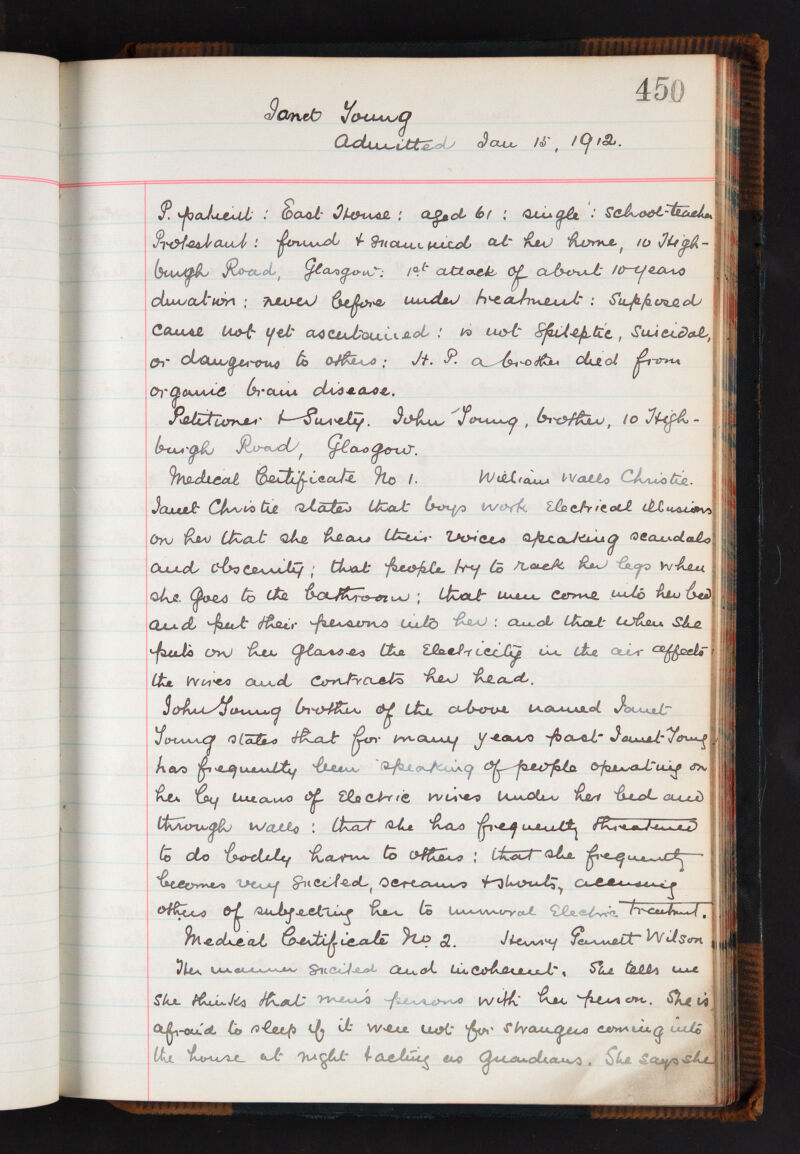 450
Janet Young
Admitted Jan 15, 1912.
P. patient : East House : aged 61 : single : School-teacher
Protestant : found & examined at her home, 10 High-
burgh Road, Glasgow : 1st attack of about 10 years
duration : never before under treatment : Supposed
cause not yet ascertained : is not Epileptic, Suicidal,
or dangerous to others : H. P. a brother died from
organic brain disease.
Petitioner & Surety. John Young, brother, 10 High-
burgh Road, Glasgow.
Medical Certificate No 1. William Walls Christie.
Janet Christie states that boys work Electrical illusions
on her that she hears their voices speaking scandals
and obscenity ; that people try to rack her legs when
she goes to the bathroom ; that men come into her bed
and put their persons into her : and that when she
puts on her glasses the Electricity in the air affects
the wires and contracts her head.
John Young brother of the above named Janet
Young states that for many years past Janet Young
has frequently been speaking of people operating on
her by means of Electric wires under her bed and
through walls : that she has frequently threatened
to do bodily harm to others : that she frequently
becomes very Excited, screams & shouts, accusing
others of subjecting her to immoral Electric treatment.
Medical Certificate No. 2. Henry Garnett Wilson
Her manner Excited and incoherent. She tells me
she thinks that men's persons with her person. She is
afraid to sleep if it were not for strangers coming into
the house at night & acting as guardians. She says she